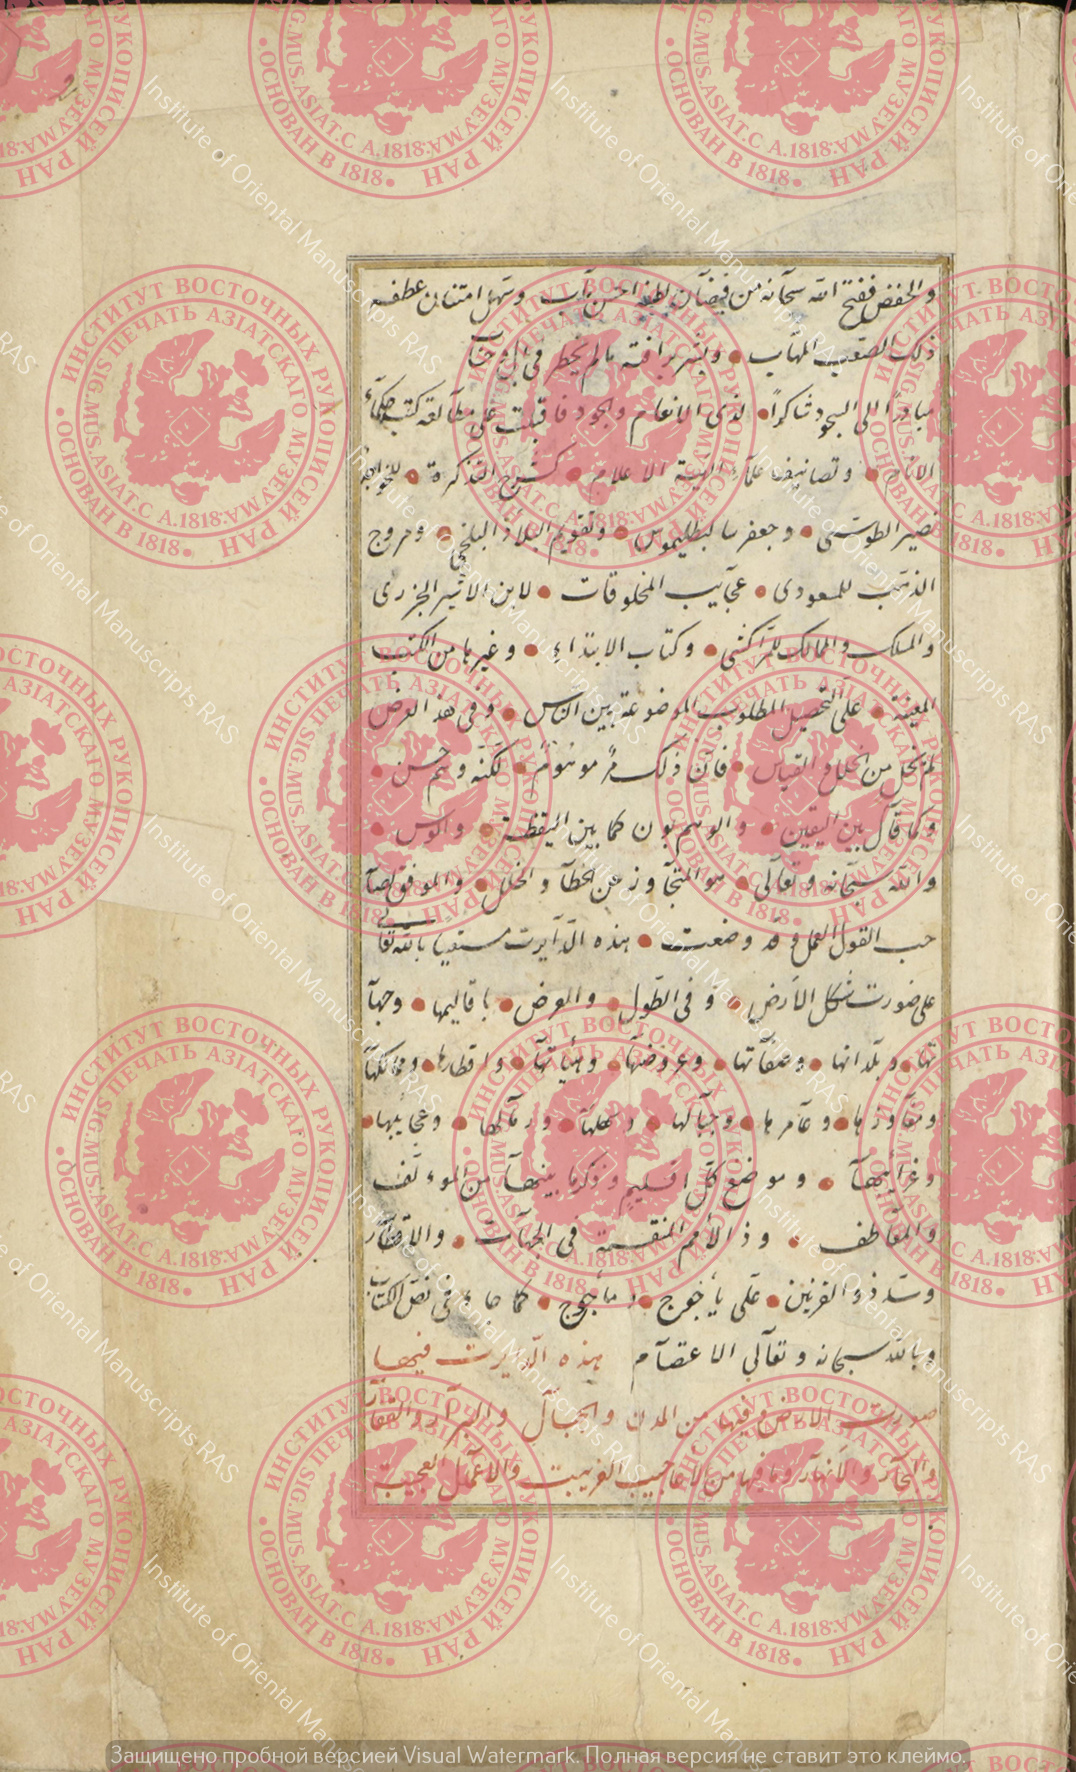 والخفض ففتح الله سبحانه من فيضان لطفه احسن باب وسهل امتنان عطفه
ذلك الصعب المهاب • ويسر برافته مالم يخطر في البال
مبادرا الى السجود شاكرا • لذى الانعام والجود فاقبلت على مطالعة كتب حكماء
الانام • وتصانيف علماء الهيئة الاعلام • كشرح التذكرة • للخواجه
نصير الطوسى • وجعفريا لبطليموس • وتقويم البلاد البلخى • ومروج
الذهب للمسعودى • عجايب المخلوقات • لابن الاثير الجزرى
والمسالك والممالك للمراكشى • وكتاب الابتداء • وغيرها من الكتب
المعينة • على التحصيل المطلوب الموضوعة بين الناس • وفى هذ الغرض
لم يخل من الخلل والقياس • فان ذلك موهوم • لكنه وهم حسن •
وكما قال بين اليقين • والوهم بون كما بين اليقظة • والوسن •
والله سبحانه وتعالى • هو المتجاوز عن الخطآ والخلل • والموفق لصآ
حب القول العمل وقد وضعت • هذه الدآيرت مستعينا بالله تعالى
على صورت شكل الارض • وفى الطول • والعرض • باقاليمها • وجهآ
تها • وبلدانها • وصفاتها • وعروضها • وهيآتها • واقطارها • وممالكها
ومفاوزها • وعامرها • وجبالها • وسهلها • ورمالها • وعجايبها •
وغرايبها • وموضع كل اقليم وذكر ما بينها من الموء تلف
والمعاطف • وذ الأمم المنقسمة فى الجهات • والاقطار
وسد ذو القرنين • على يأجوج • ومأجوج • كما جاء فى نص الكتاب
وبالله سبحانه وتعالى الاعتصآم هذه الدايرت فيها
صورت الارض وفيها من المدن والجبال والبرآر والقفار
والبحار والانهار وما فيها من الاعاجيب الغريبت والاعمال العجيبت
ИНСТИТУТ ВОСТОЧНЫХ РУКОПИСЕЙ РАН
ОСНОВАН В 1818
ПЕЧАТЬ АЗІАТСКАГО МУЗЕУМА
SIG.MUS.ASIAT.C A.1818
Institute of Oriental Manuscripts RAS
Защищено пробной версией Visual Watermark. Полная версия не ставит это клеймо.